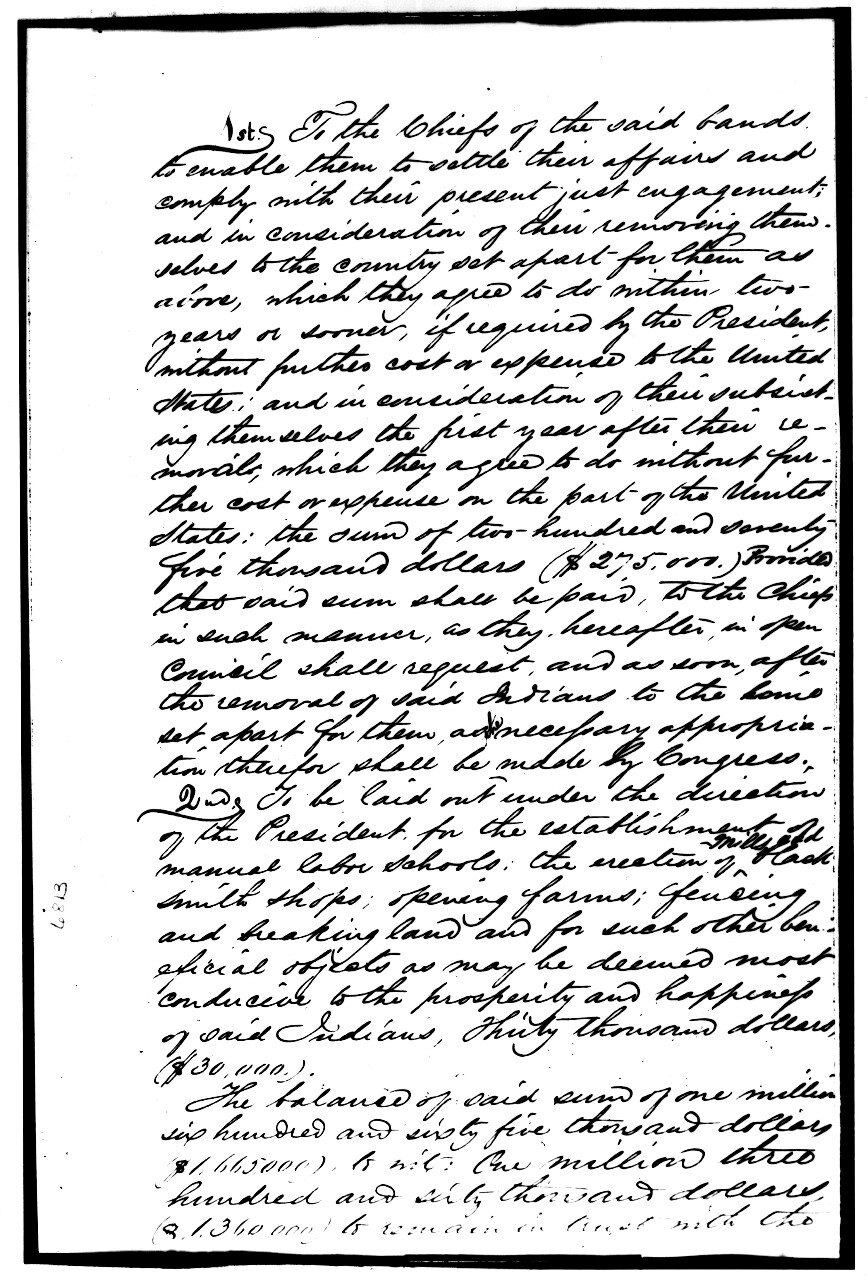 1st. To the Chiefs of the said bands
to enable them to settle their affairs and
comply with their present just engagement;
and in consideration of their removing them-
selves to the country set apart for them as
above, which they agree to do within two
years or sooner, if required by the President,
without further cost or expense to the United
States; and in consideration of their subsist-
ing themselves the first year after their re-
movals, which they agree to do without fur-
ther cost or expense on the part of the United
States: the sum of two hundred and seventy
five thousand dollars ($275.000.) Provided
that said sum shall be paid, to the Chiefs
in such manner, as they, hereafter, in open
Council shall request, and as soon, after
the removal of said Indians to the home
set apart for them, as necessary appropria-
tion therefor shall be made by Congress.
2nd. To be laid out under the direction
of the President for the establishment of
manual labor schools; the erection of mills and black
smith shops; opening farms; fencing
and breaking land and for such other ben-
eficial objects as may be deemed most
conducive to the prosperity and happiness
of said Indians, Thirty thousand dollars,
($30,000.).
The balance of said sum of one million
six hundred and sixty five thousand dollars
($1.665000) to wit: One million three
hundred and sixty thousand dollars,
($1.360000) to remain in trust with the
6813